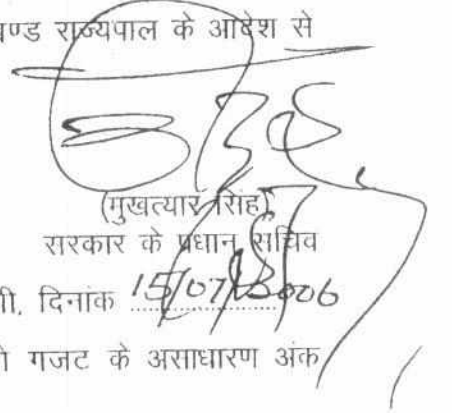 ण्ड राज्यपाल के आदेश से
(मुखत्यार सिंह)
सरकार के प्रधान सचिव
दिनांक 15/07/2006
गजट के असाधारण अंक